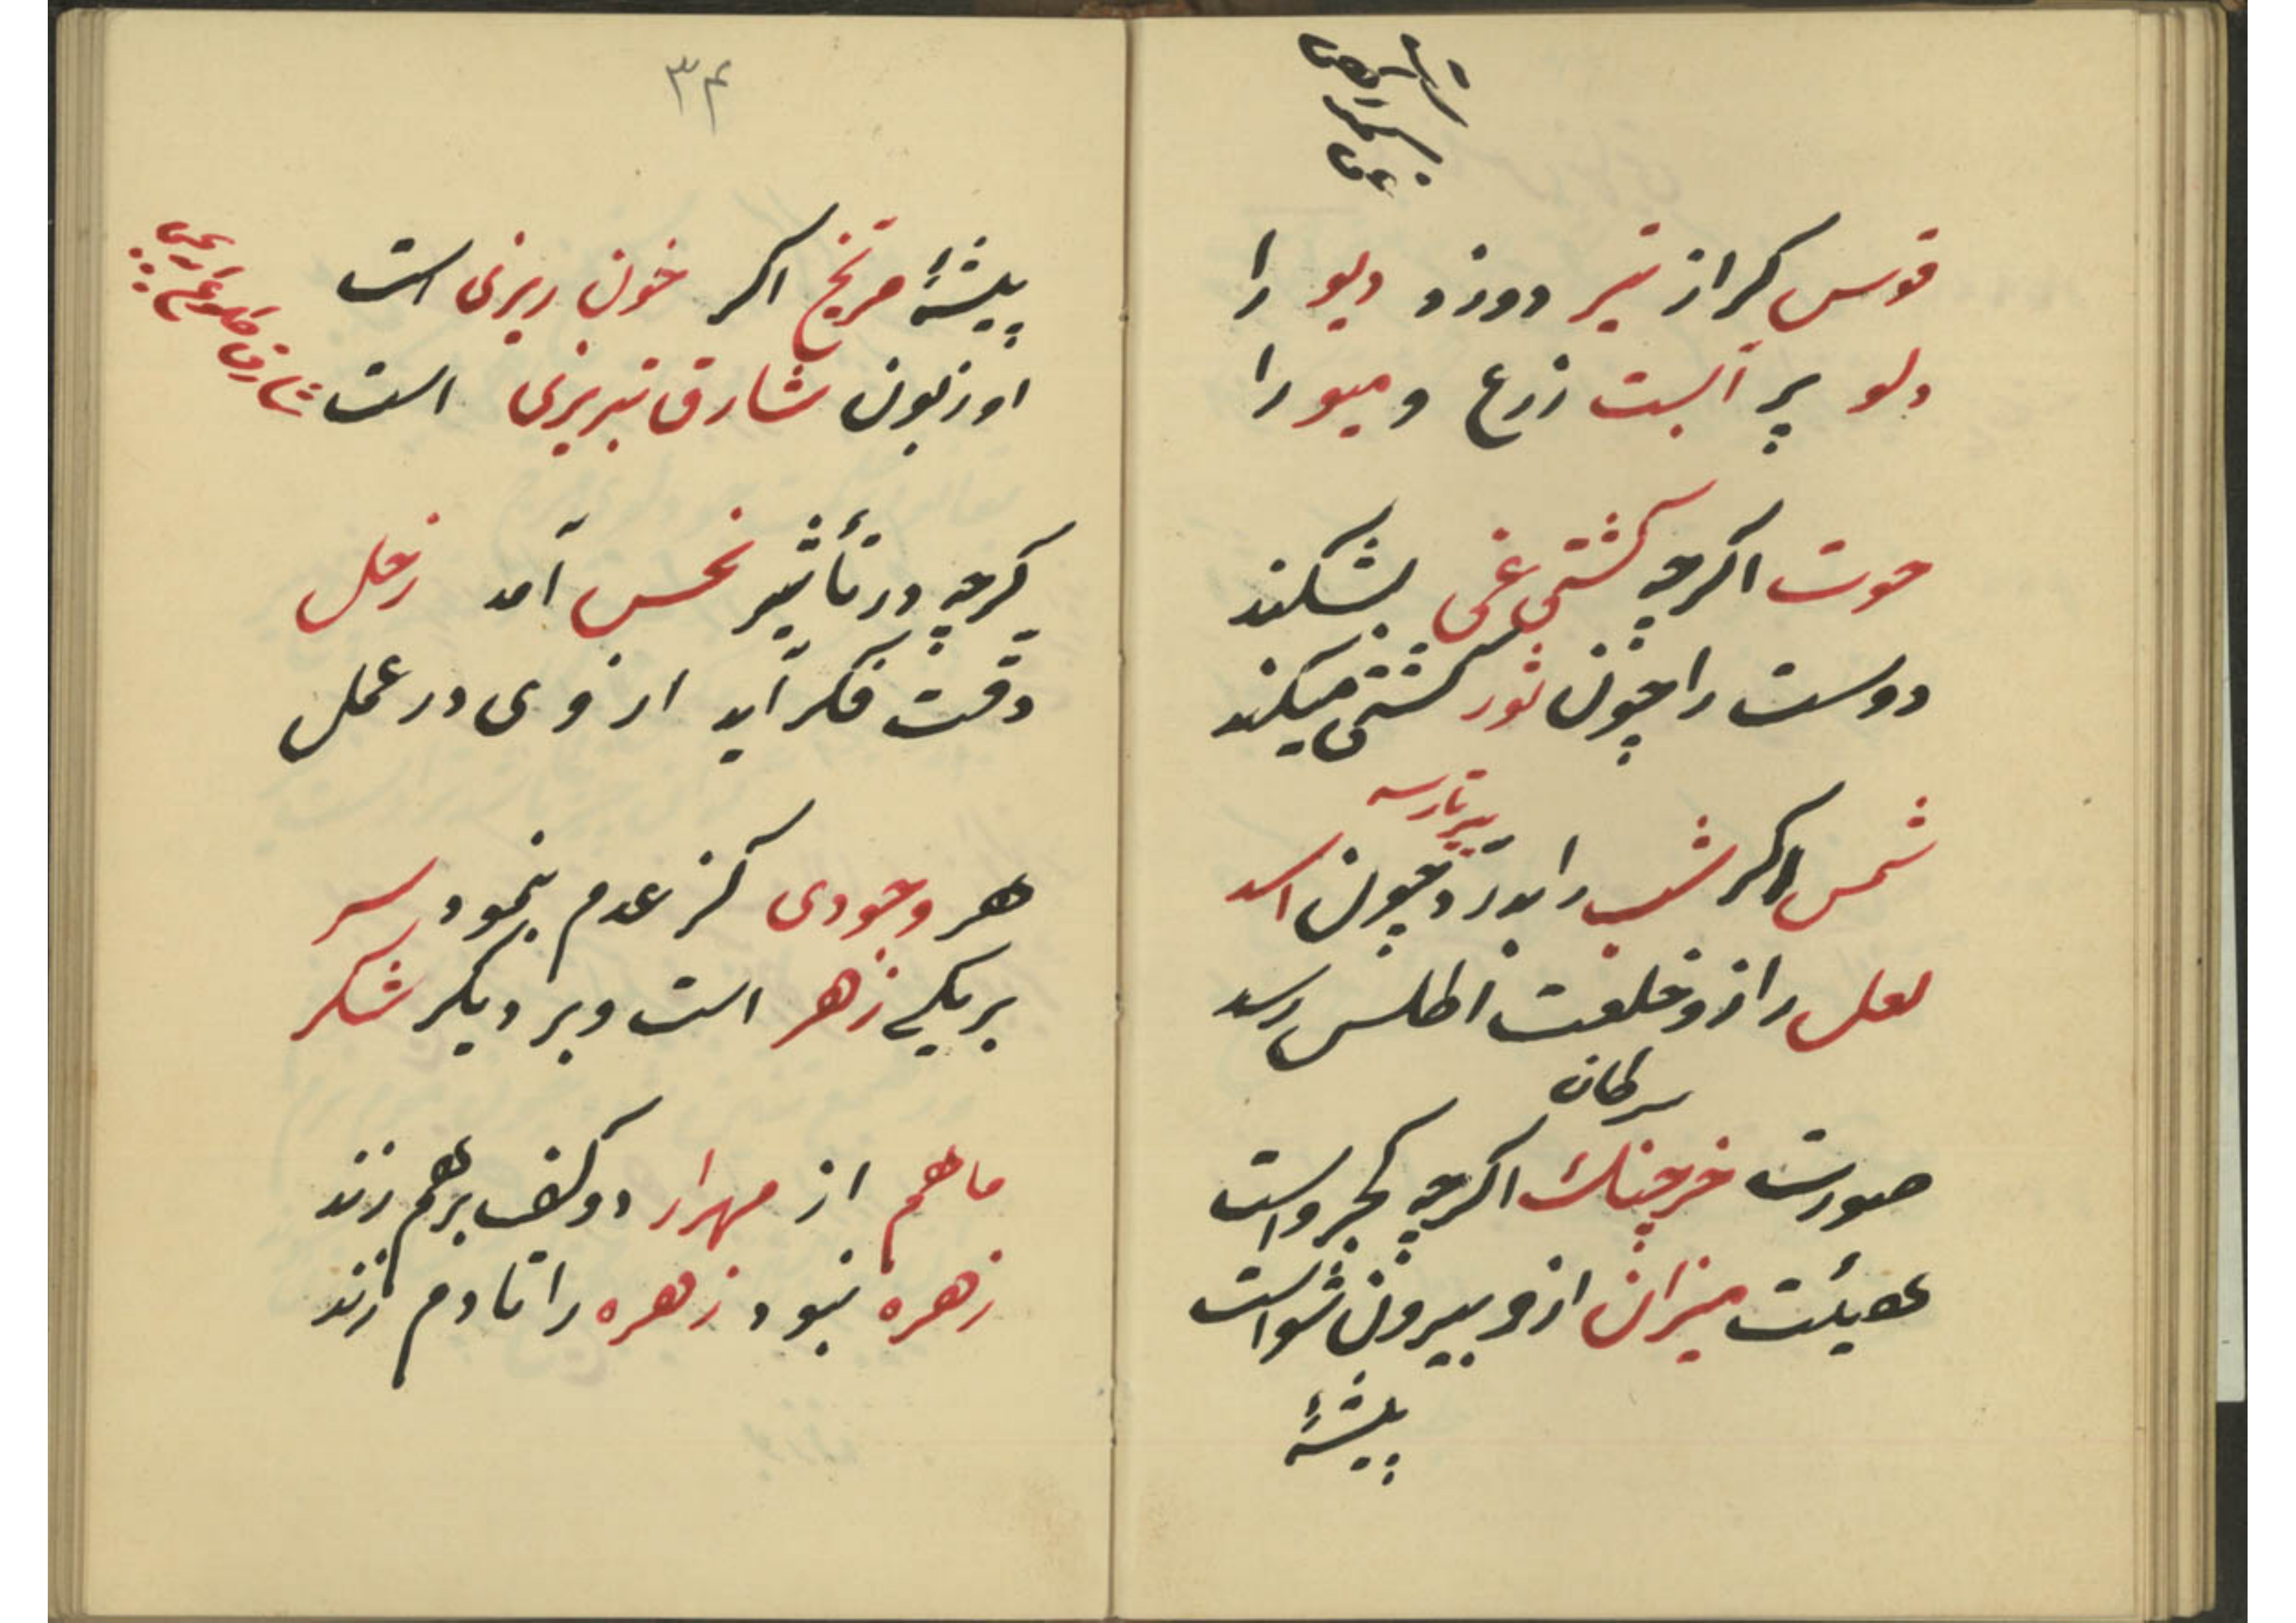 قوس کر از تیر دوزد دیو را
دلو پر آبست زرع و میو را
حوت اکرچه کشتی غی بشکند
دوست را چون ثور کشتی میکند
شمس اکر شب را بدرد چون اسد
لعل را زو خلعت اطلس رسد
سرطان
صورت خرچنک اکرچه کجرو است
هیئت میزان ازو بیرون شو است
پیشهٔ
۳۴
پیشهٔ مریخ اکر خون ریزی است
او زبون شارق تبریزی است
کرچه در تأثیر نحس آمد زحل
دقت فکر آید از وی در عمل
هر وجودی کز عدم بنمود سر
بر یکی زهر است و بر دیکر شکر
ماهم از مهرار دو کف برهم زند
زهره نبود زهره را تا دم زند